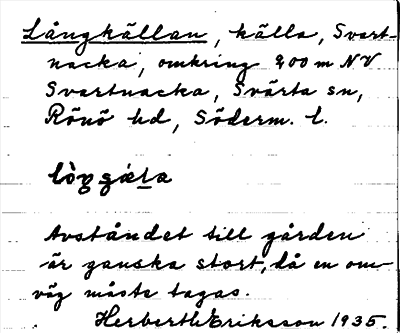 Långkällan, källa, Svart-
nacka, omkring 200 m NV
Svartnacka, Svärta sn,
Rönö hd, Söderm. l.
Avståndet till gården
är ganska stort, då en om-
väg måste tagas.
Herbert Eriksson 1935.